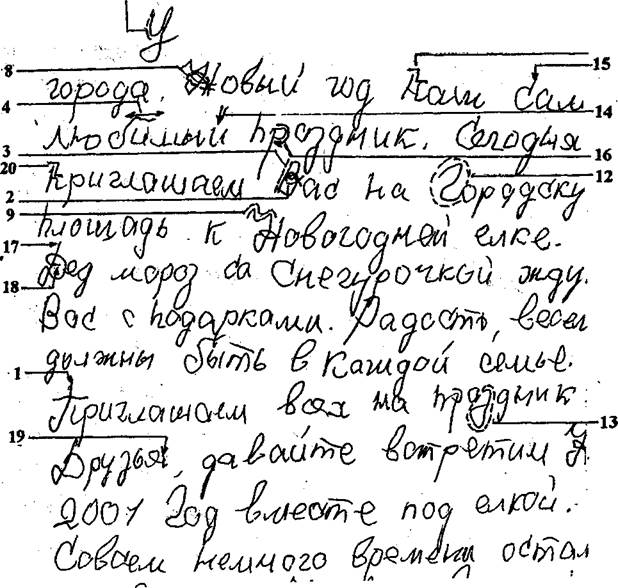 у
8 15
города. Новый год наш сам
4 14
любимый праздник. Сегодня
3 16
20 приглашаем Вас на Городску 12
2
9 площадь к Новогодней елке.
17
Дед мороз са Снегурочкой жду.
18
Вас с подарками. Радость, весел
должны быть в каждой семье.
1
Приглашаем всех на праздник 13
19
Друзья, давайте встретим
2001 Год вместе под елкой.
Совсем немного времени остал